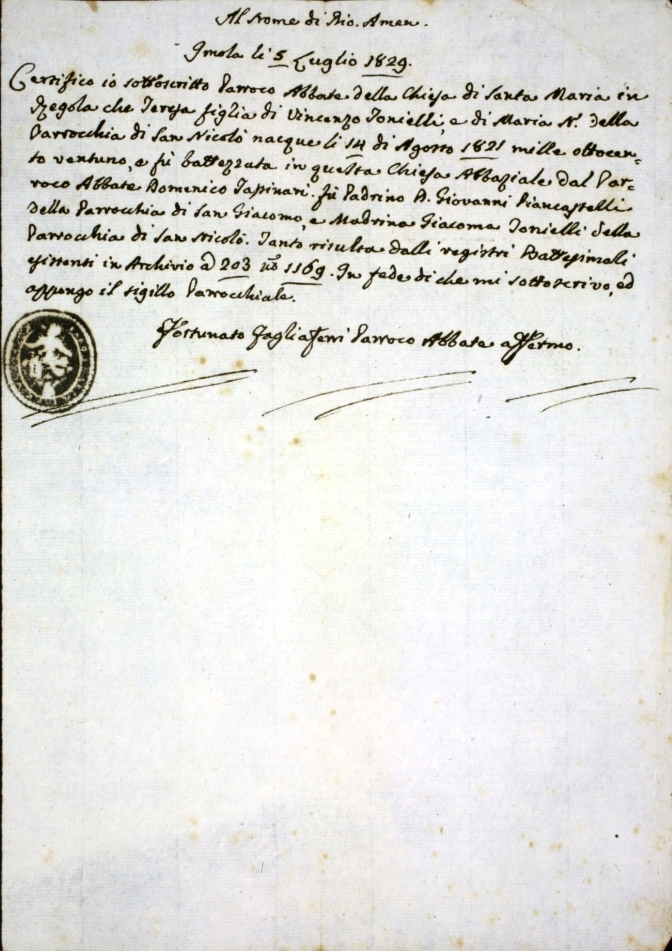 Al Nome di Dio. Amen.
Imola li 5 Luglio 1829.
Certifico io sottoscritto Parroco Abbate della Chiesa di Santa Maria in
Regola che Teresa figlia di Vincenzo Tonielli, e di Maria N. della
Parrocchia di San Nicolò nacque li 14 di Agosto 1821 mille ottocen-
to ventuno, e fù battezzata in questa Chiesa Abbaziale dal Par-
roco Abbate Domenico Tassinari. fù Padrino D. Giovanni Piancastelli
della Parrocchia di San Giacomo, e Madrina Giacoma Tonielli della
Parrocchia di San Nicolò. Tanto risulta dalli registri Battesimali
esistenti in Archivio a 203 nº 1169. In fede di che mi sottoscrivo, ed
appongo il sigillo Parrocchiale.
Fortunato Tagliaferri Parroco Abbate affermo.